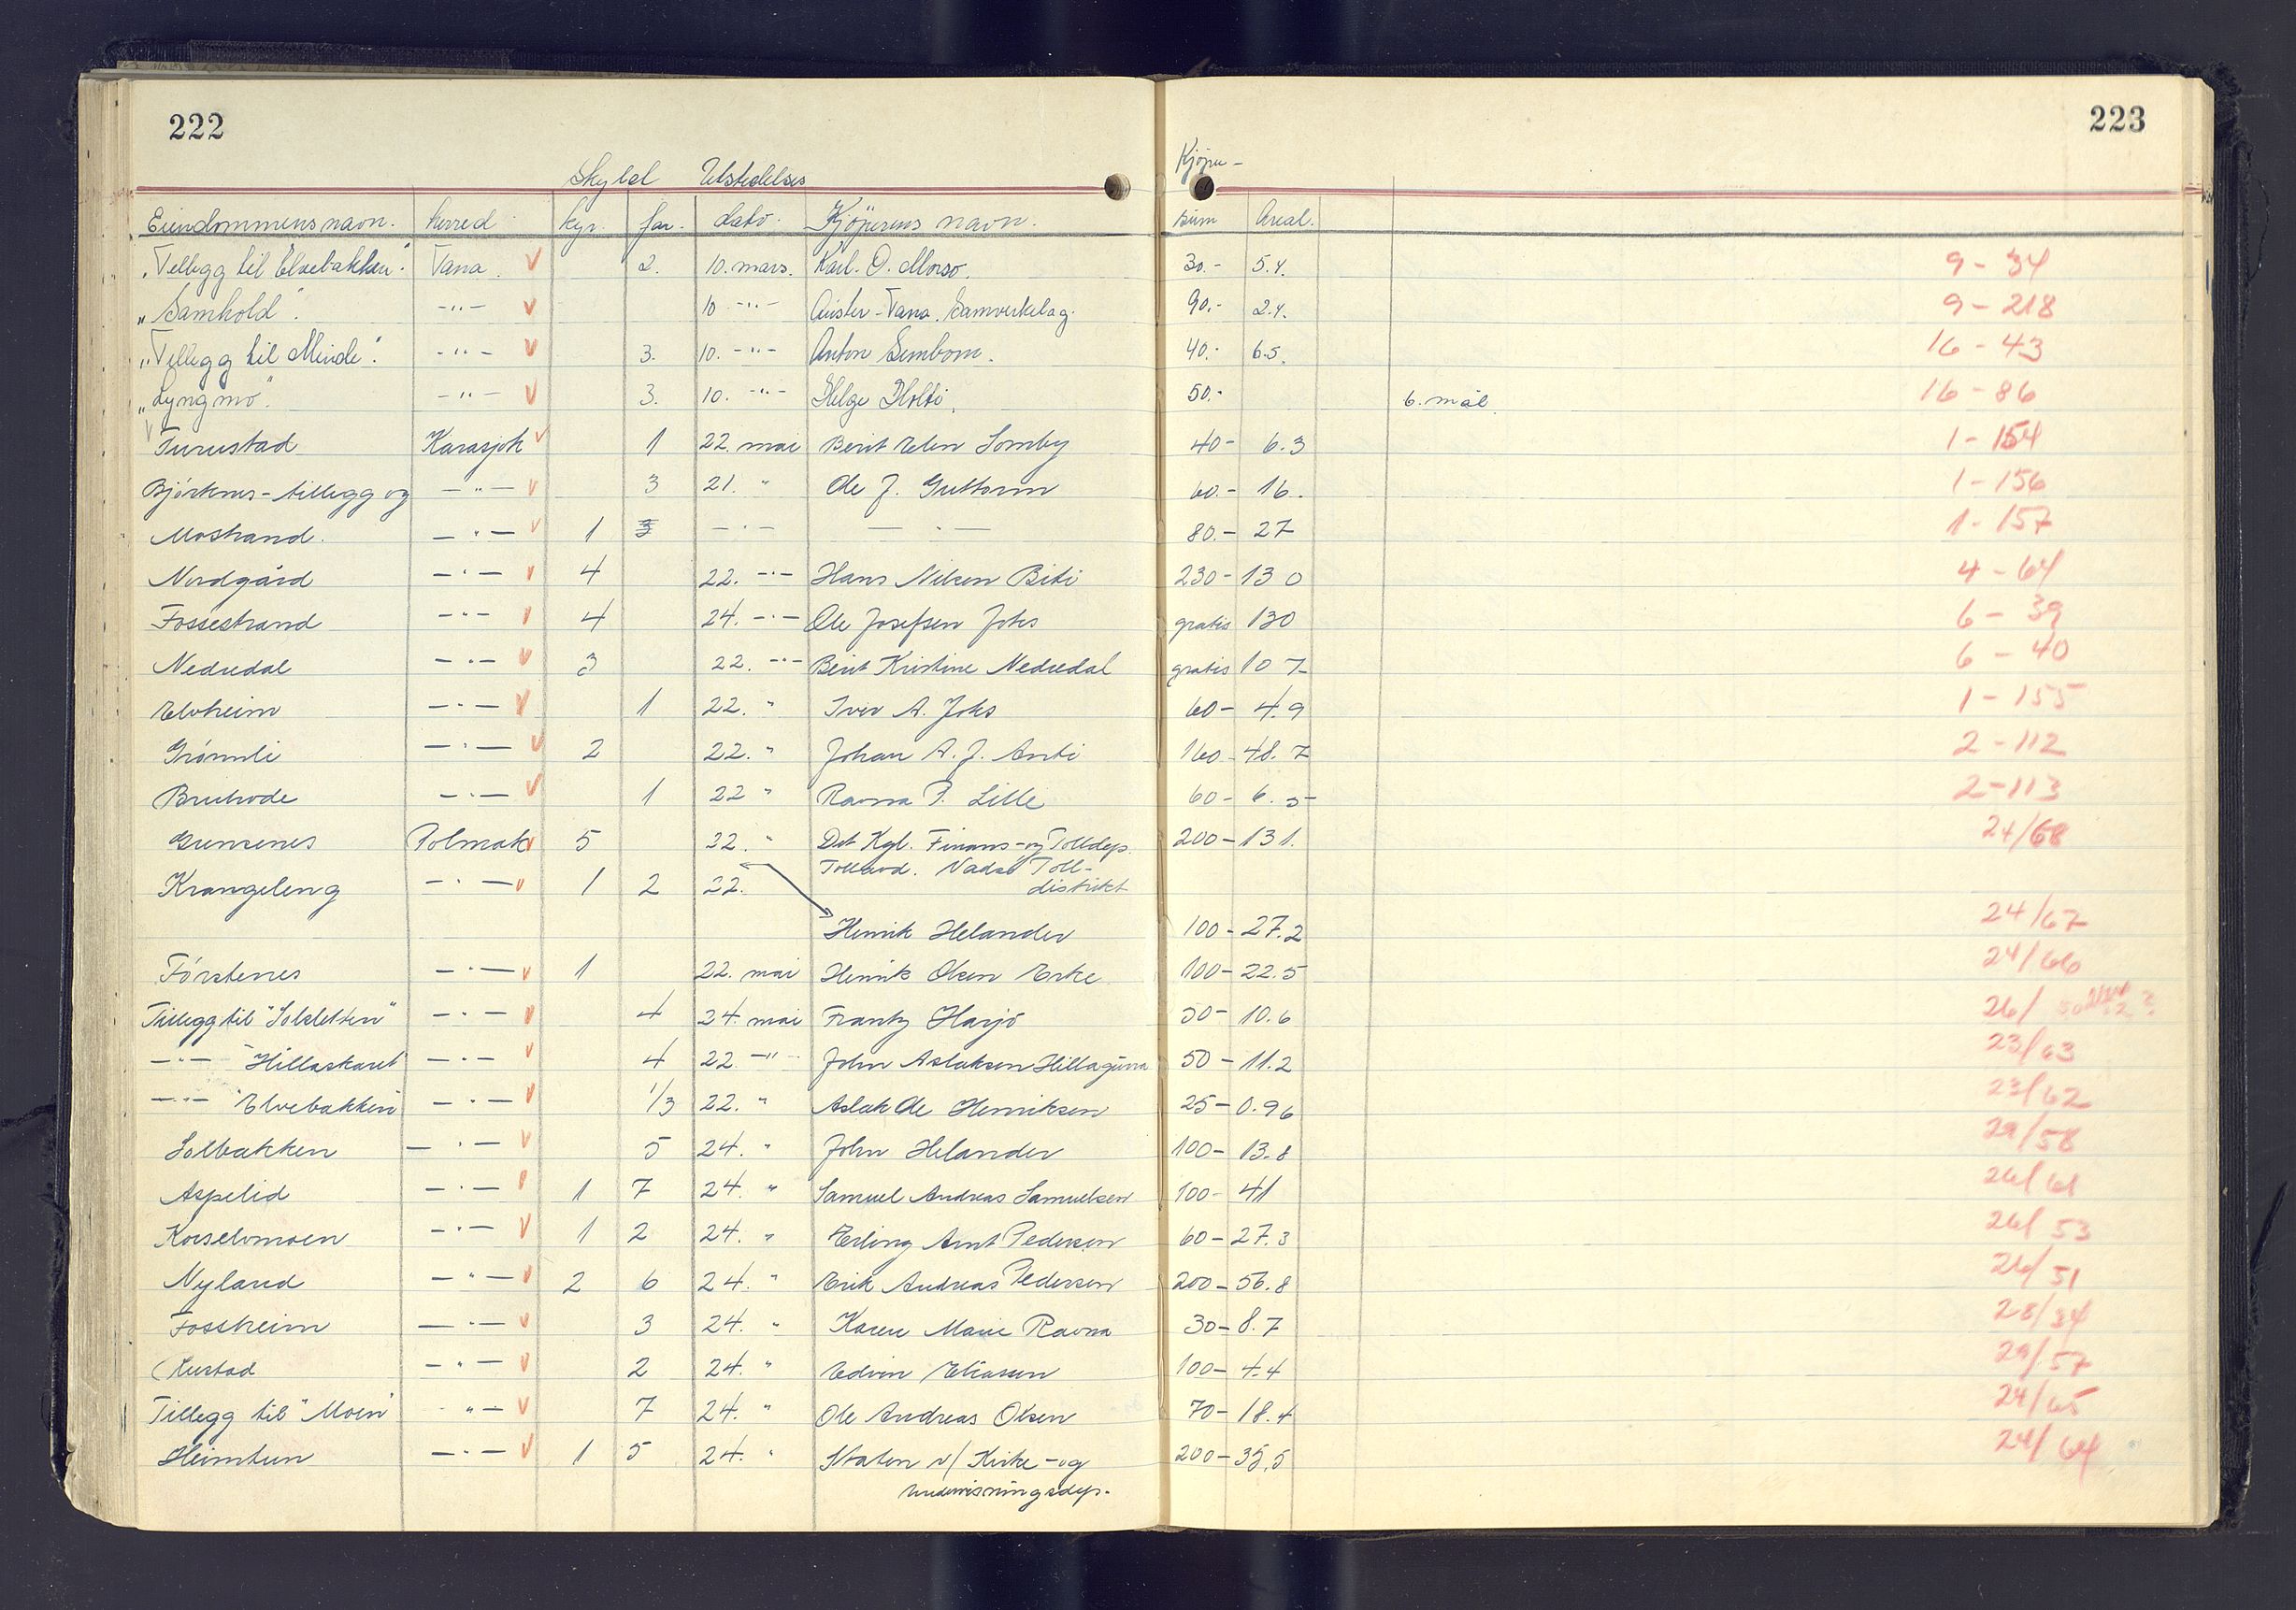 222
223
Skyld Utstedelses Kjøpe-
Eiendommens navn. herred kyr. før. dato. Kjøperens navn. sum Areal.
"Tillegg til Elvebakken". Tana. V 2. 10. mars. Karl. O. 30.- 5.4. 9 - 34
"Samhold". -"- V 10 -"- Auster-Tana. Samvirkelag. 90.- 2.4. 9 - 218
"Tillegg til Minde". -"- V 3. 10. -"- Anton Simbom. 40.- 6.5. 16 - 43
"Lyngmo". -"- V 3. 10. -"- Helge Holti. 50.- 6. mål. 16 - 86
Turustad Karasjok V 1 22. mai Berit Elen Somby 40- 6.3 1 - 154
Björknes - tillegg og -"- V 3 21. " Ole J. Guttorm 60.- 16. 1 - 156
Mostrand. -"- V 1 -"- -"- 80.- 27 1 - 157
Nordgård -"- V 4 22. -"- Hans Nilsen Biti 230- 130 4 - 64
Fossestrand -"- V 4 24. -"- Ole Josefsen Joks gratis 130 6 - 39
Nedredal -"- V 3 22. -"- Berit Kristine Nedredal gratis 107 6 - 40
Elvheim -"- V 1 22. " Iver A. Joks 60- 4.9 1 - 155
Grönnli -"- V 2 22. " Johan A. J. Anti 160- 48.7 2 - 112
-"- V 1 22 " Ravna P. Lille 60- 6.5- 2 - 113
Polmak V 5 22. " Det Kgl. Finans- og Tolldep. 200- 131. 24/68
Vadsö Toll-
Krangeleng -"- V 1 2 22. distrikt
Henrik Helander 100- 27.2 24/67
Förstenes -"- V 1 22. mai Henrik Olsen Erke 100- 22.5 24/66
Tillegg til "Solsletten" -"- V 4 24. mai Frantz Harjo 50- 10.6 26/
-"- "Hillaskaret" -"- V 4 22. -"- John Aslaksen Hillagurra 50- 11.2 23/63
-"- "Elvebakken" -"- V 1/3 22. " Aslak Ole Henriksen 25- 0.96 23/62
Solbakken -"- V 5 24. " John Helander 100- 13.8 29/58
Aspelid -"- V 1 7 24. " Samuel Andreas Samuelsen 100- 41 26/61
Korselvmoen -"- V 1 2 24. " Erling Arnt Pedersen 60- 27.3 26/53
Nyland -"- V 2 6 24. " Erik Andreas Pedersen 200- 56.8 26/51
Fossheim -"- V 3 24. " Karen Marie Ravna 30- 8.7 28/34
-"- V 2 24. " Edvin Eliassen 100- 4.4 29/57
Tillegg til "Moen" -"- V 7 24. " Ole Andreas Olsen 70- 18.4 24/65
Heimtun -"- V 1 5 24. " Staten v/ Kirke- og 200- 35,5 24/64
undervisningsdep.